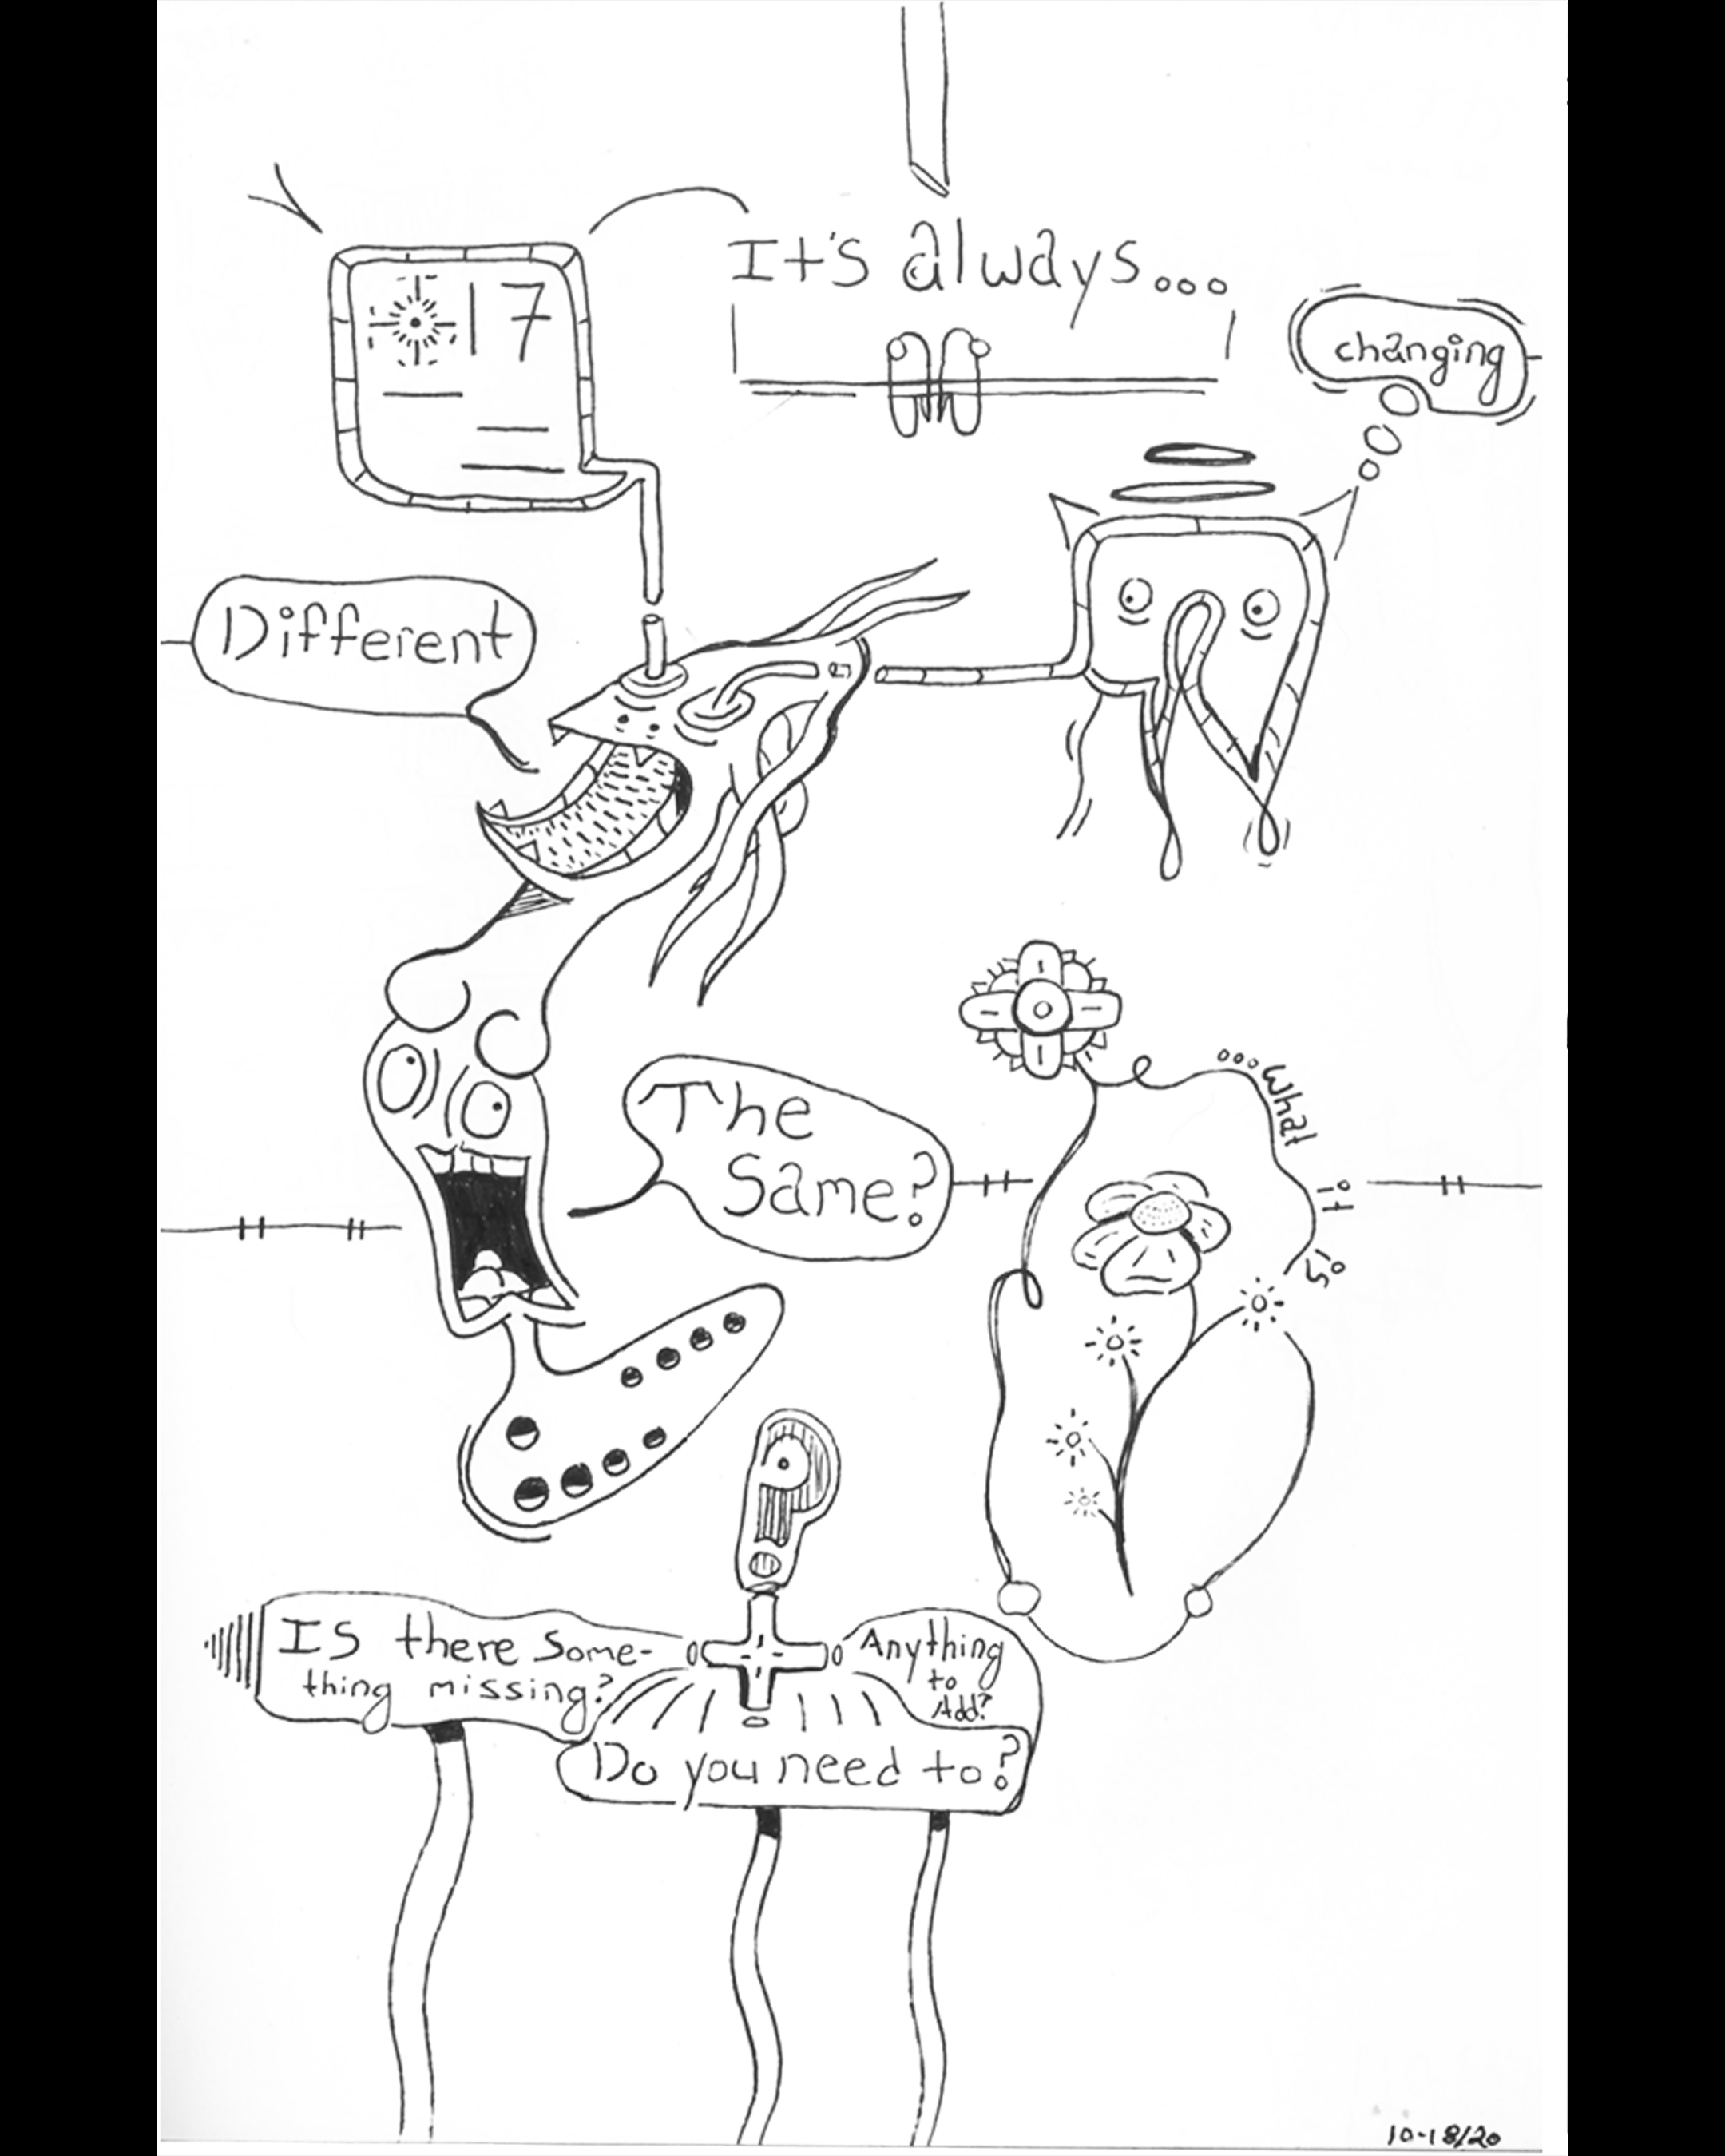 It's always...
17
changing
Different
The
Same?
...What it is
Is there Some-
thing missing?
Anything
to
Add?
Do you need to?
10-18/20